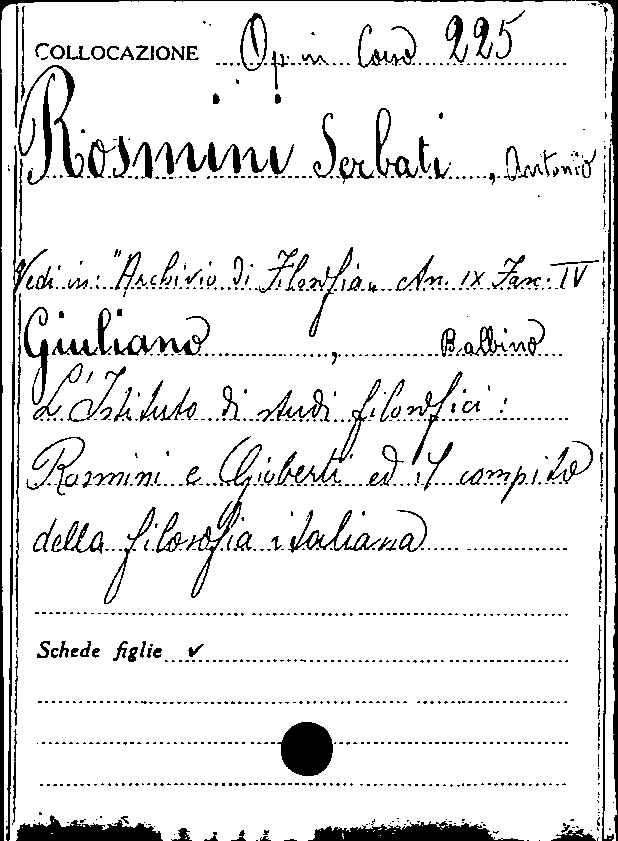 COLLOCAZIONE Op. in Corso 225
Rosmini Serbati, Antonio
Vedi in: "Archivio di Filosofia" An. IX Fasc. IV
Giuliano, Balbino
L'Istituto di studi filosofici:
Rosmini e Gioberti ed il compito
della filosofia italiana
Schede figlie ✓